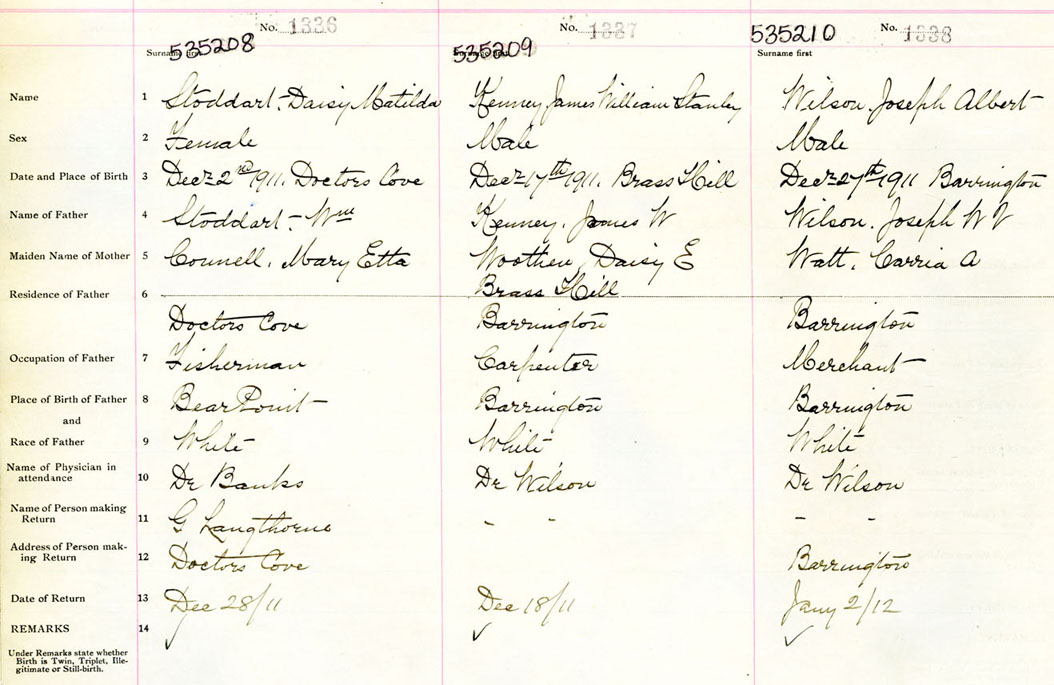 No. 1336 No. 1337 No. 1338
535208 535209 535210
Surname first Surname first Surname first
Name 1 Stoddart - Daisy Matilda Kenney James William Stanley Wilson. Joseph Albert
Sex 2 Female Male Male
Date and Place of Birth 3 Decr 2nd 1911. Doctors Cove Decr 17th 1911. Brass Hill Decr 27th 1911 Barrington
Name of Father 4 Stoddart - Wm Kenney. James W Wilson. Joseph W V
Maiden Name of Mother 5 Connell. Mary Etta Woothen, Daisy E Watt. Carria A
Brass Hill
Residence of Father 6
Doctors Cove Barrington Barrington
Occupation of Father 7 Fisherman Carpenter Merchant
Place of Birth of Father 8 Bear Point Barrington Barrington
and
Race of Father 9 White White White
Name of Physician in
attendance 10 Dr Banks Dr Wilson Dr Wilson
Name of Person making
Return 11 G Langthorne - - - -
Address of Person mak-
ing Return 12 Doctors Cove Barrington
Date of Return 13 Dec 28/11 Dec 18/11 Jany 2/12
REMARKS 14 ✓ ✓ ✓
Under Remarks state whether
Birth is Twin, Triplet, Ille-
gitimate or Still-birth.